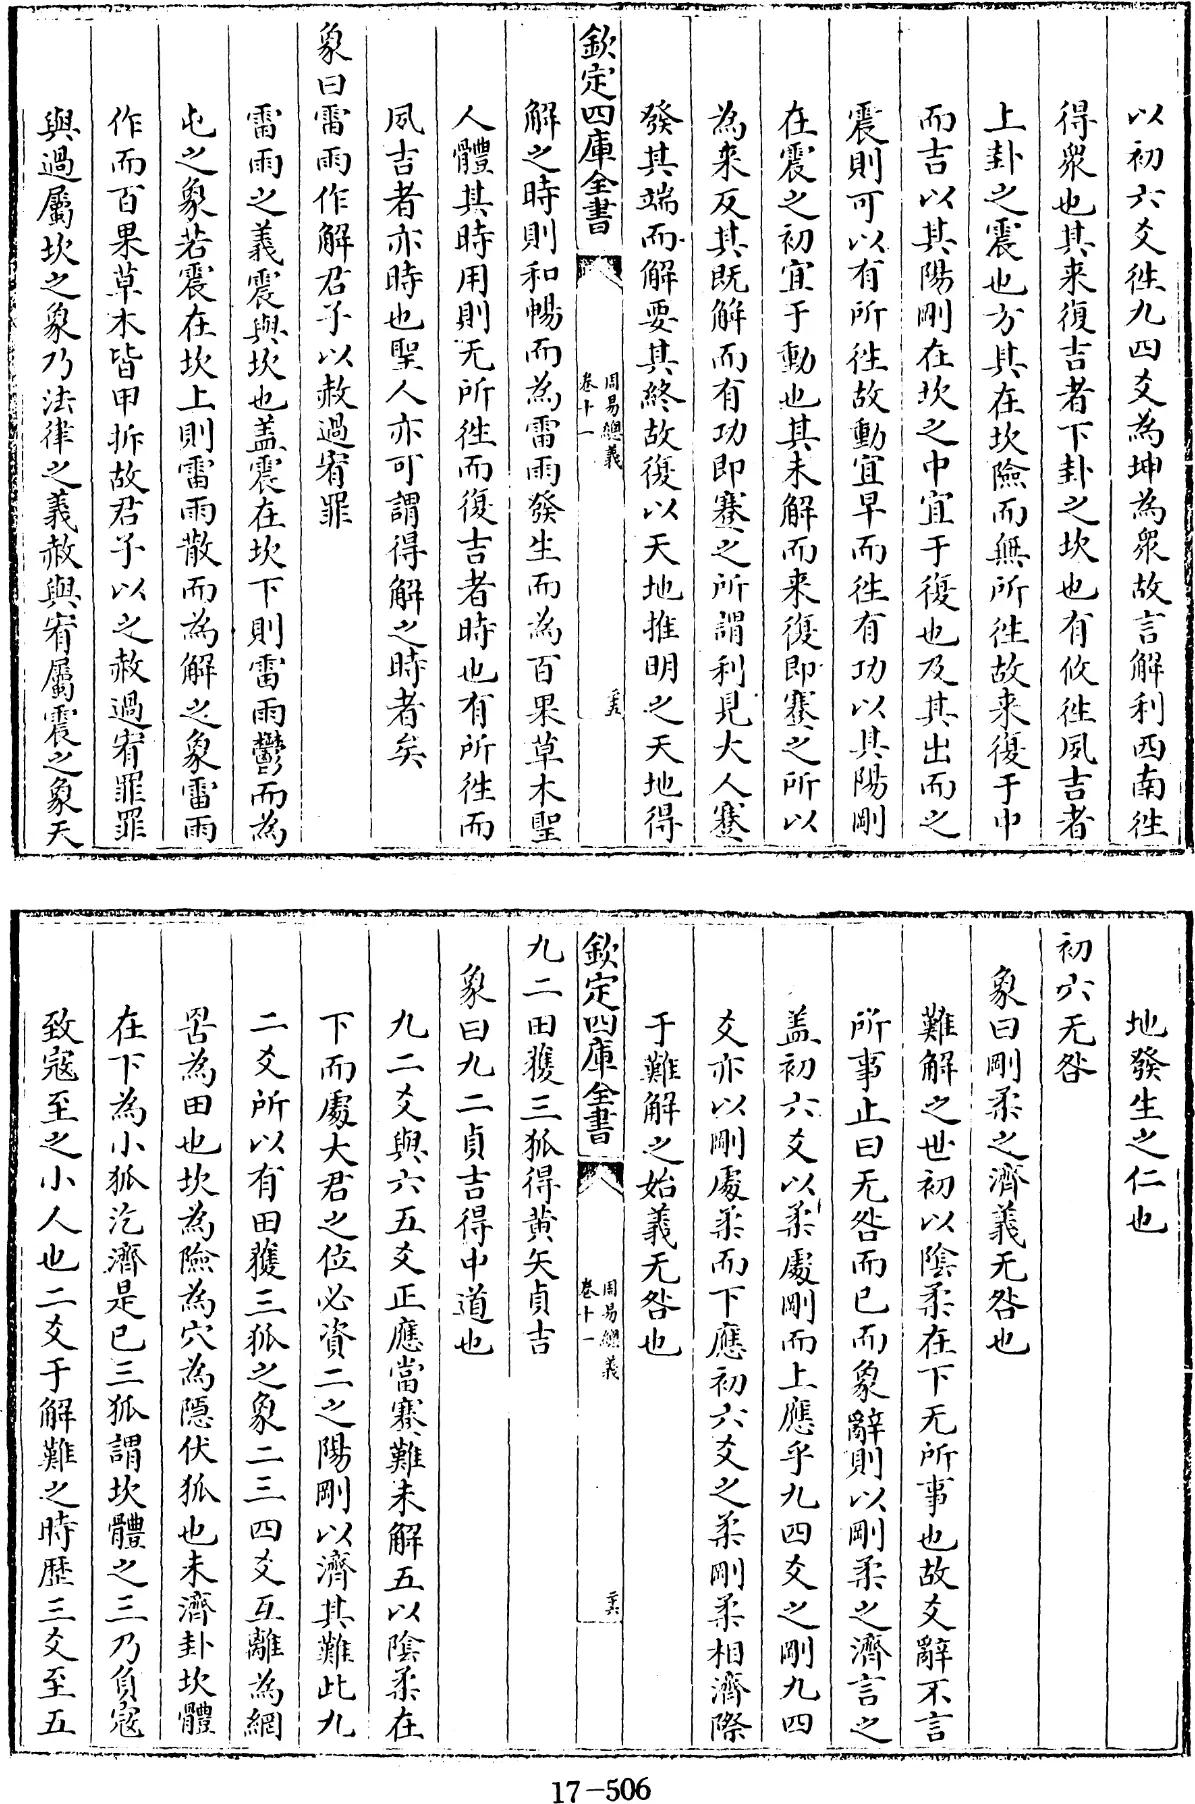 以初六爻徃九四爻為坤為衆故言解利西南徃
得衆也其来復吉者下卦之坎也有攸徃夙吉者
上卦之震也方其在坎險而無所徃故来復于中
而吉以其陽剛在坎之中宜于復也及其出而之
震則可以有所徃故動宜早而徃有功以其陽剛
在震之初宜于動也其未解而来復即蹇之所以
為来反其既解而有功即蹇之所謂利見大人蹇
發其端而解要其終故復以天地推明之天地得
欽定四庫全書
周易總義
卷十一
二十五
解之時則和暢而為雷雨發生而為百果草木聖
人體其時用則无所徃而復吉者時也有所徃而
夙吉者亦時也聖人亦可謂得解之時者矣
象曰雷雨作解君子以赦過宥罪
雷雨之義震與坎也盖震在坎下則雷雨鬱而為
屯之象若震在坎上則雷雨散而為解之象雷雨
作而百果草木皆甲拆故君子以之赦過宥罪罪
與過屬坎之象乃法律之義赦與宥屬震之象天
地發生之仁也
初六无咎
象曰剛柔之濟義无咎也
難解之世初以陰柔在下无所事也故爻辭不言
所事止曰无咎而已而象辭則以剛柔之濟言之
盖初六爻以柔處剛而上應乎九四爻之剛九四
爻亦以剛處柔而下應初六爻之柔剛柔相濟際
于難解之始義无咎也
欽定四庫全書
周易總義
卷十一
二十六
九二田獲三狐得黄矢貞吉
象曰九二貞吉得中道也
九二爻與六五爻正應當蹇難未解五以陰柔在
下而處大君之位必資二之陽剛以濟其難此九
二爻所以有田獲三狐之象二三四爻互離為網
罟為田也坎為險為穴為隱伏狐也未濟卦坎體
在下為小狐汔濟是已三狐謂坎體之三乃負寇
致寇至之小人也二爻于解難之時歴三爻至五
17-506